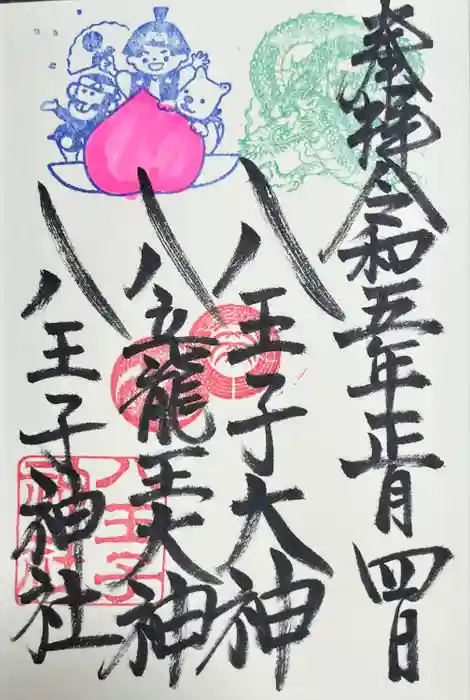 奉拝 令和五年正月四日
八王子大神
八龍王大神
八王子神社
八王子
神社